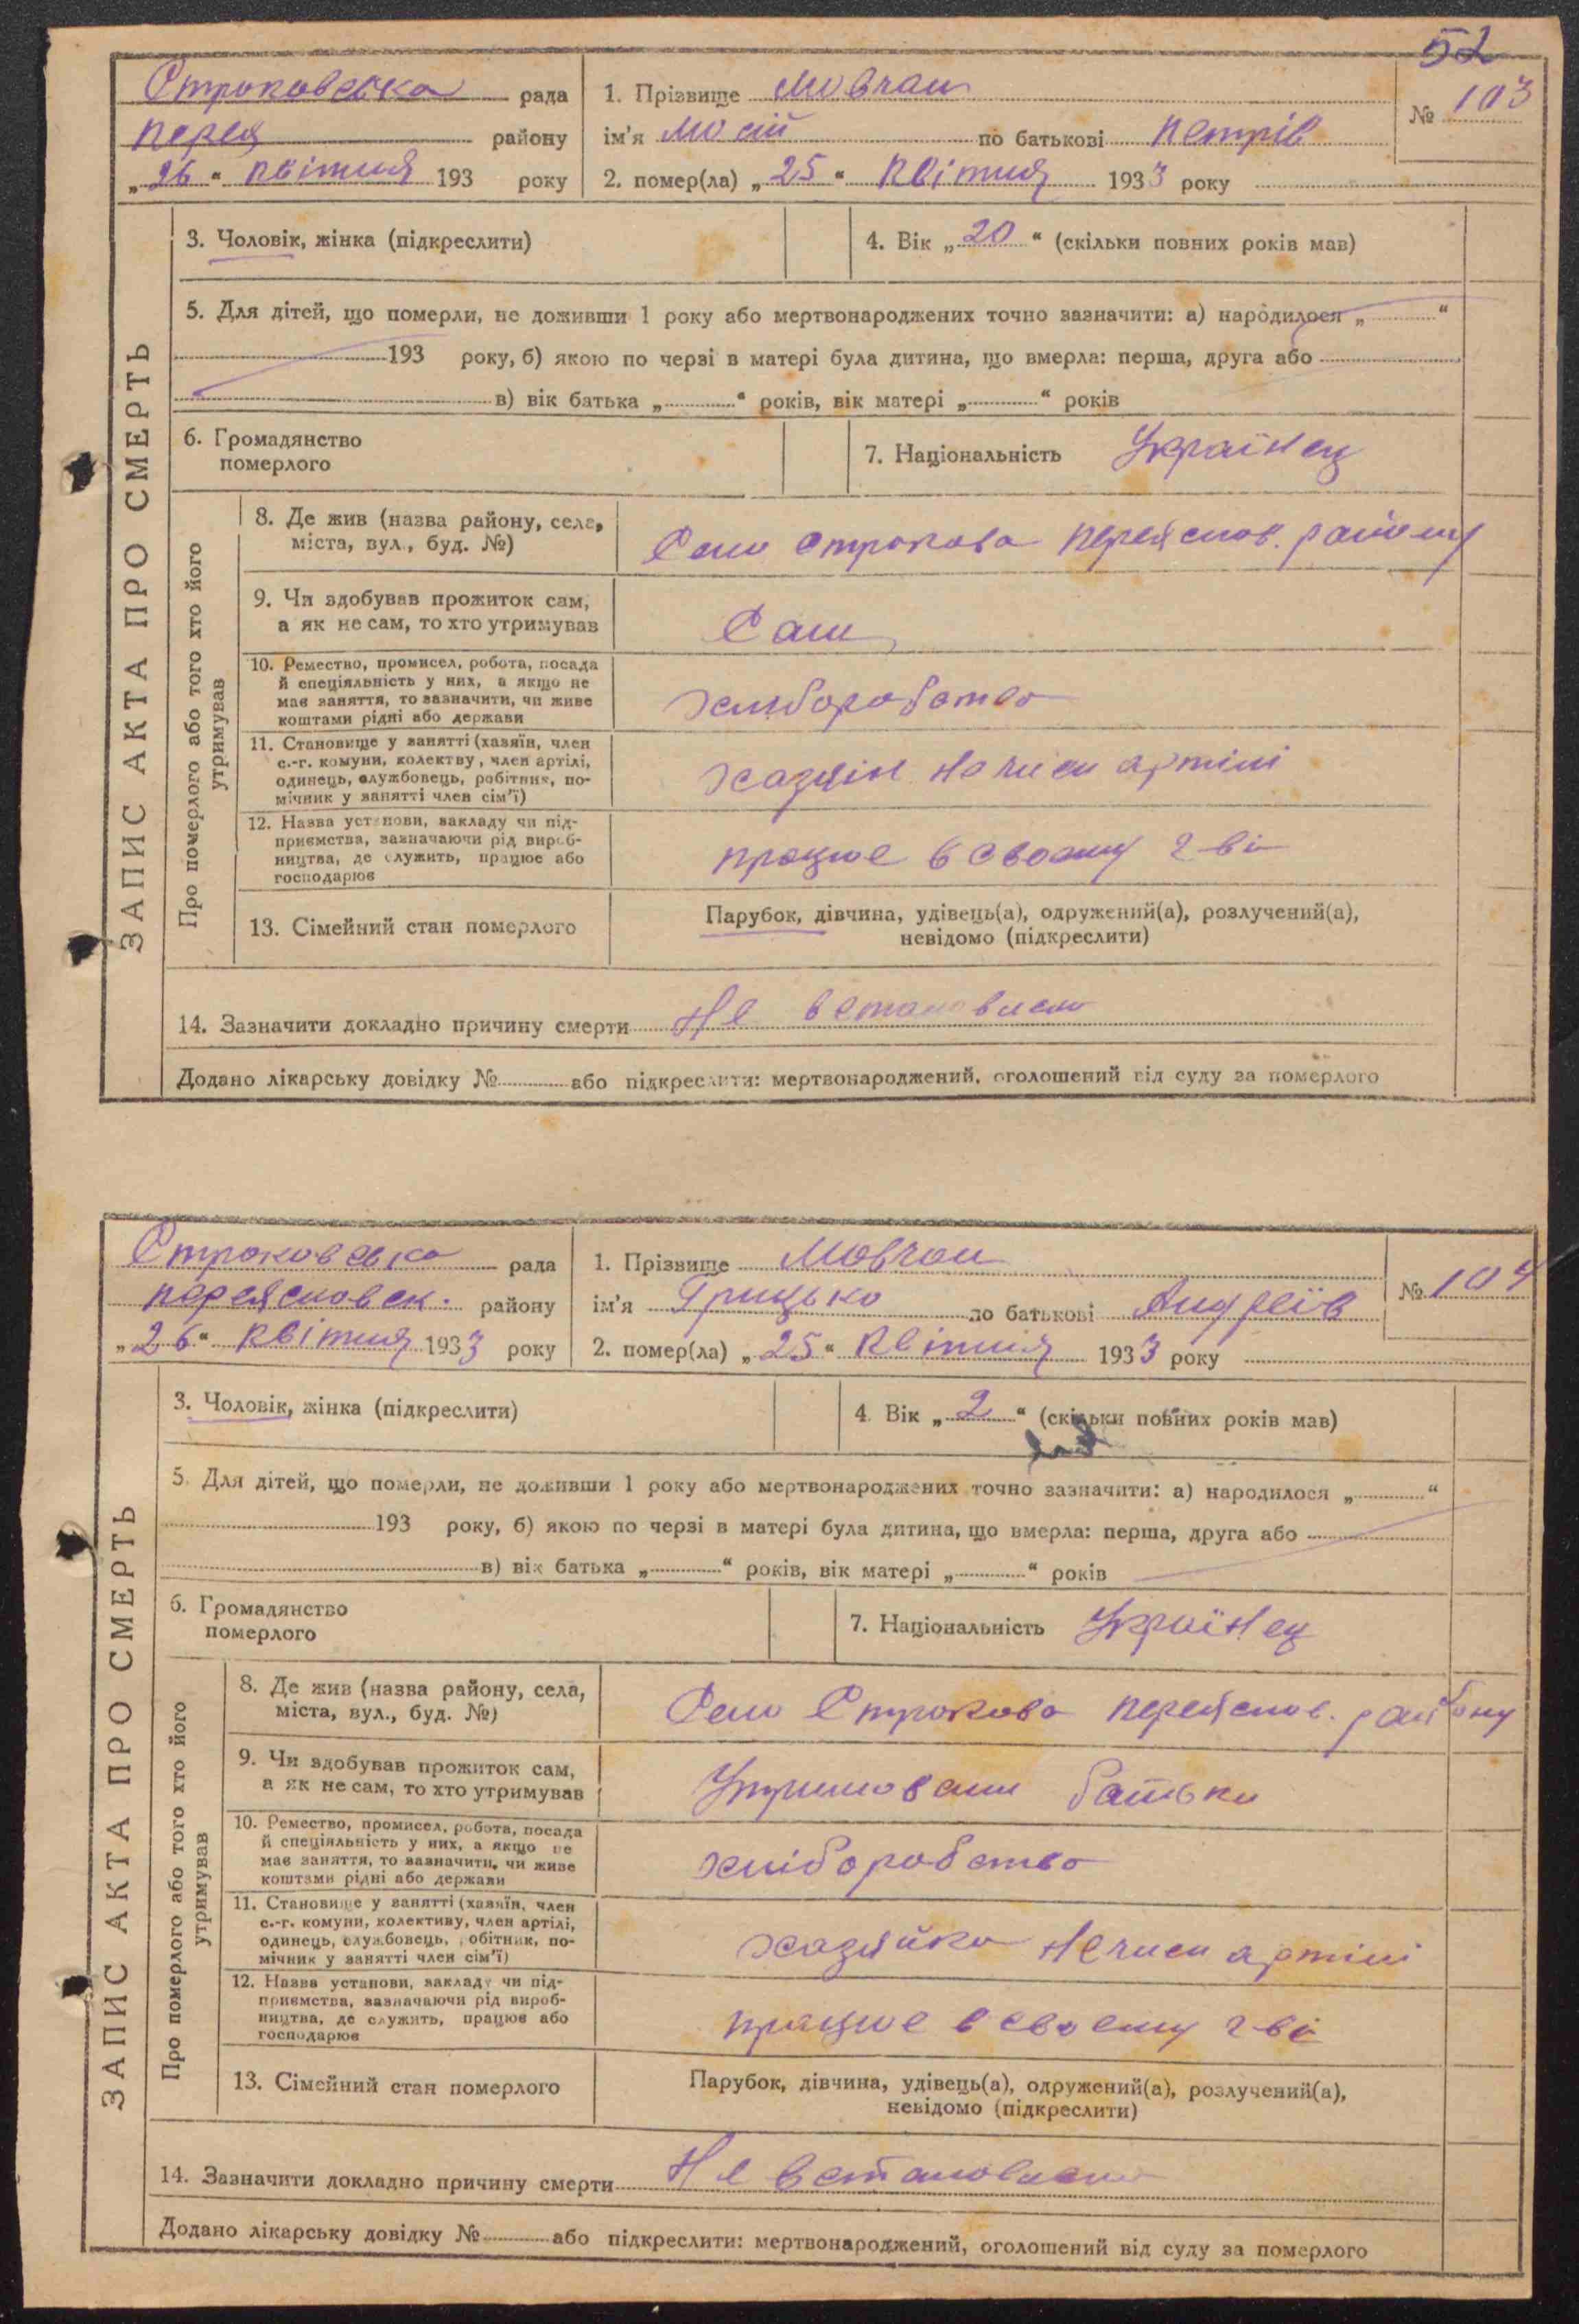 52
Строковська рада
Перея району
„26“ квітня 193 року
1. Прізвище Мовчан
ім'я Мосій по батькові Петрів
2. помер(ла) „25“ квітня 1933 року
№ 103
ЗАПИС АКТА ПРО СМЕРТЬ
3. Чоловік, жінка (підкреслити)
4. Вік „20“ (скільки повних років мав)
5. Для дітей, що померли, не доживши 1 року або мертвонароджених точно зазначити: а) народилося „ “
193 року, б) якою по черзі в матері була дитина, що вмерла: перша, друга або
в) вік батька „ “ років, вік матері „ “ років
6. Громадянство
померлого
7. Національність Українец
Про померлого або того хто його
утримував
8. Де жив (назва району, села,
міста, вул., буд. №)
Село Строкова Переяслов. району
9. Чи здобував прожиток сам,
а як не сам, то хто утримував
Сам
10. Ремество, промисел, робота, посада
й спеціяльність у них, а якщо не
має заняття, то зазначити, чи живе
коштами рідні або держави
хлиборобство
11. Становище у занятті (хазяїн, член
с.-г. комуни, колектву, член артілі,
одинець, службовець, робітник, по-
мічник у занятті член сім'ї)
хазяін не член артіли
12. Назва установи, закладу чи під-
приємства, зазначаючи рід вироб-
ництва, де служить, працює або
господарює
працює в своему г-ві
13. Сімейний стан померлого
Парубок, дівчина, удівець(а), одружений(а), розлучений(а),
невідомо (підкреслити)
14. Зазначити докладно причину смерти Не встановлено
Додано лікарську довідку № або підкреслити: мертвонароджений, оголошений від суду за померлого
Строковська рада
Переясловск. району
„26“ квітня 1933 року
1. Прізвище Мовчан
ім'я Грицько по батькові Андреїв
2. помер(ла) „25“ квітня 1933 року
№ 104
ЗАПИС АКТА ПРО СМЕРТЬ
3. Чоловік, жінка (підкреслити)
4. Вік „2“ (скільки повних років мав)
5. Для дітей, що померли, не доживши 1 року або мертвонароджених точно зазначити: а) народилося „ “
193 року, б) якою по черзі в матері була дитина, що вмерла: перша, друга або
в) вік батька „ “ років, вік матері „ “ років
6. Громадянство
померлого
7. Національність Українец
Про померлого або того хто його
утримував
8. Де жив (назва району, села,
міста, вул., буд. №)
Село Строкова Переяслов. району
9. Чи здобував прожиток сам,
а як не сам, то хто утримував
Утримовали батьки
10. Ремество, промисел, робота, посада
й спеціяльність у них, а якщо не
має заняття, то зазначити, чи живе
коштами рідні або держави
хліборобство
11. Становище у занятті (хазяїн, член
с.-г. комуни, колективу, член артілі,
одинець, службовець, робітник, по-
мічник у занятті член сім'ї)
хазяйка не член артіли
12. Назва установи, закладу чи під-
приємства, зазначаючи рід вироб-
ництва, де служить, працює або
господарює
працює в своему г-ві
13. Сімейний стан померлого
Парубок, дівчина, удівець(а), одружений(а), розлучений(а),
невідомо (підкреслити)
14. Зазначити докладно причину смерти Не встановлено
Додано лікарську довідку № або підкреслити: мертвонароджений, оголошений від суду за померлого